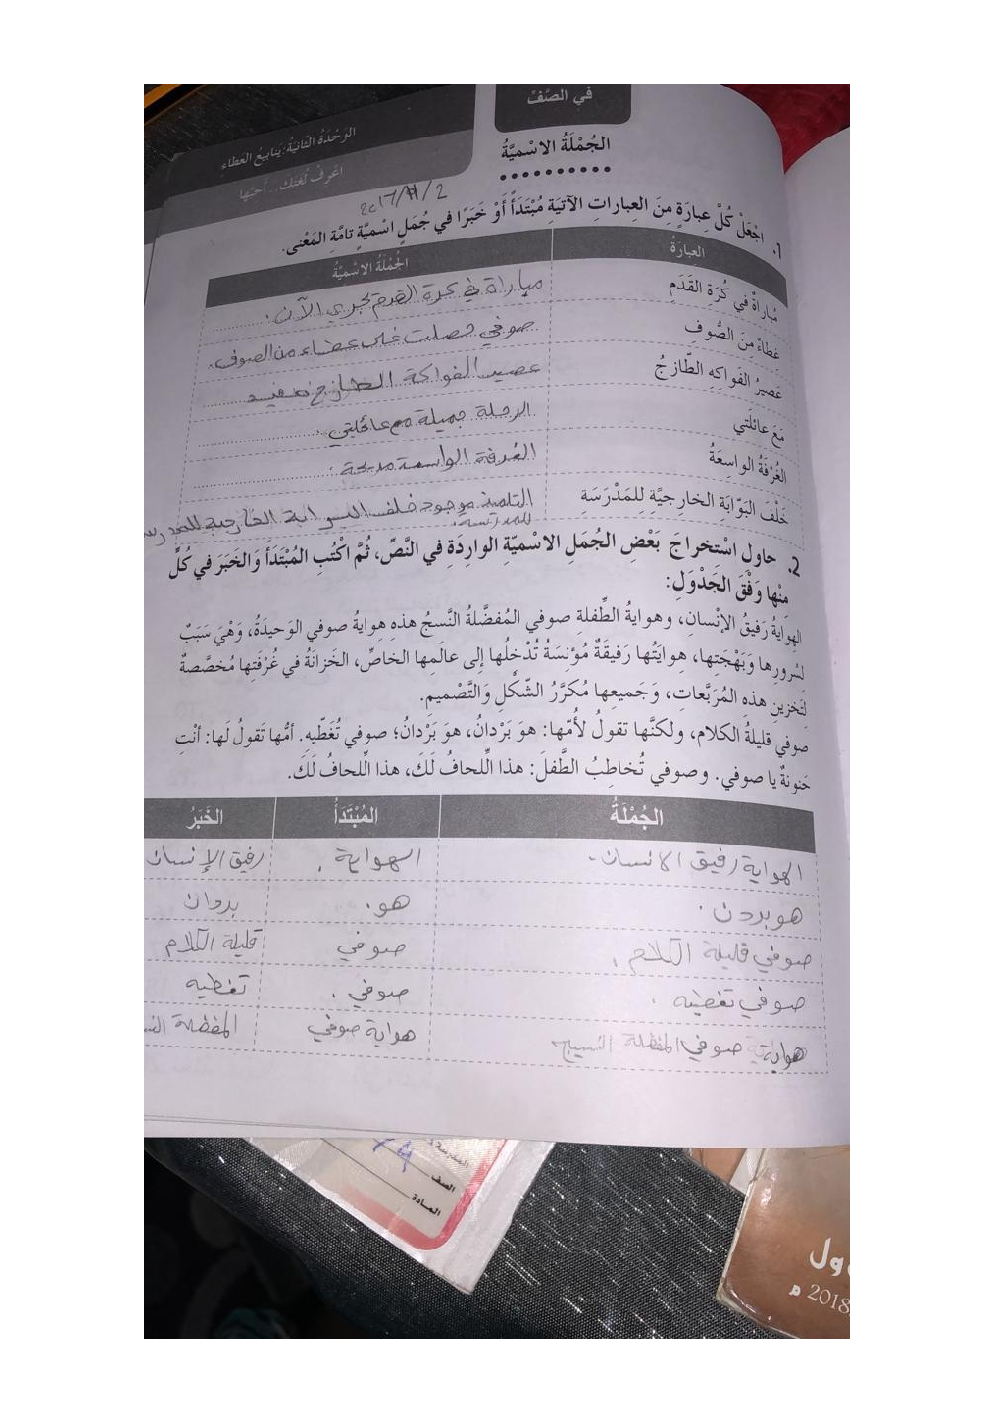 في الصَّفّ
الوَحْدَةُ الثّانِيَةُ: يَنابيعُ العَطاءِ
اعْرِفْ لُغَتَك... أَحِبَّها
الجُمْلَةُ الاسْميَّةُ
2017/11/2
1. اجْعَلْ كُلَّ عِبارَةٍ مِنَ العِباراتِ الآتيَةِ مُبْتَدَأً أَوْ خَبَرًا في جُمَلٍ اسْميَّةٍ تامَّةِ المَعْنى.
العِبارَةُ الجُمْلَةُ الاسْميَّةُ
مُباراةٌ في كُرَةِ القَدَمِ مباراة في كرة القدم تجري الآن.
غِطاءٌ مِنَ الصُّوفِ صوفي حصلت على غطاء من الصوف.
عَصيرُ الفَواكِهِ الطّازَجُ عصير الفواكة الطازج مفيد
مَعَ عائلَتي الرحلة جميلة مع عائلتي.
الغُرْفَةُ الواسِعَةُ الغرفة الواسعة مريحة.
خَلْفَ البَوّابَةِ الخارجيَّةِ لِلمَدْرَسَةِ التلميذ موجود خلف البوابة الخارجية للمدرسة
للمدرسة.
2. حاول اسْتِخراجَ بَعْضِ الجُمَلِ الاسْميّةِ الوارِدَةِ في النَّصّ، ثُمَّ اكْتُبِ المُبْتَدَأَ وَالخَبَرَ في كُلٍّ
مِنْها وَفْقَ الجَدْوَلِ:
الهِوايَةُ رَفيقُ الإنْسانِ، وهوايةُ الطِّفلةِ صوفي المُفضَّلةُ النَّسجُ هذهِ هِوايةُ صوفي الوَحيدَةُ، وَهْيَ سَبَبٌ
لِسُرورِها وَبَهْجَتِها، هِوايَتُها رَفيقَةٌ مُؤنسَةٌ تُدْخلُها إلى عالَمِها الخاصِّ، الخَزانَةُ في غُرْفَتِها مُخصَّصةٌ
لِتَخزينِ هذه المُرَبَّعاتِ، وَجَميعِها مُكرَّرُ الشّكْلِ وَالتَّصْميم.
صوفي قليلةُ الكلام، ولكنَّها تقولُ لأمِّها: هوَ بَرْدانُ، هوَ بَرْدانُ؛ صوفي تُغَطّيهِ. أمُّها تَقولُ لَها: أنْتِ
حَنونةٌ يا صوفي. وصوفي تُخاطِبُ الطَّفلَ: هذا اللِّحافُ لَكَ، هذا اللِّحافُ لَكَ.
الجُمْلَةُ المُبْتَدَأُ الخَبَرُ
الهواية رفيق الانسان. الهواية. رفيق الإنسان
هو بردن. هو. بردان
صوفي قليلة الكلام. صوفي قليلة الكلام
صوفي تغطيه. صوفي. تغطيه
هواية صوفي المفظلة النسيج هواية صوفي المفظلة
المدرسة
الصف
المـادة
2018